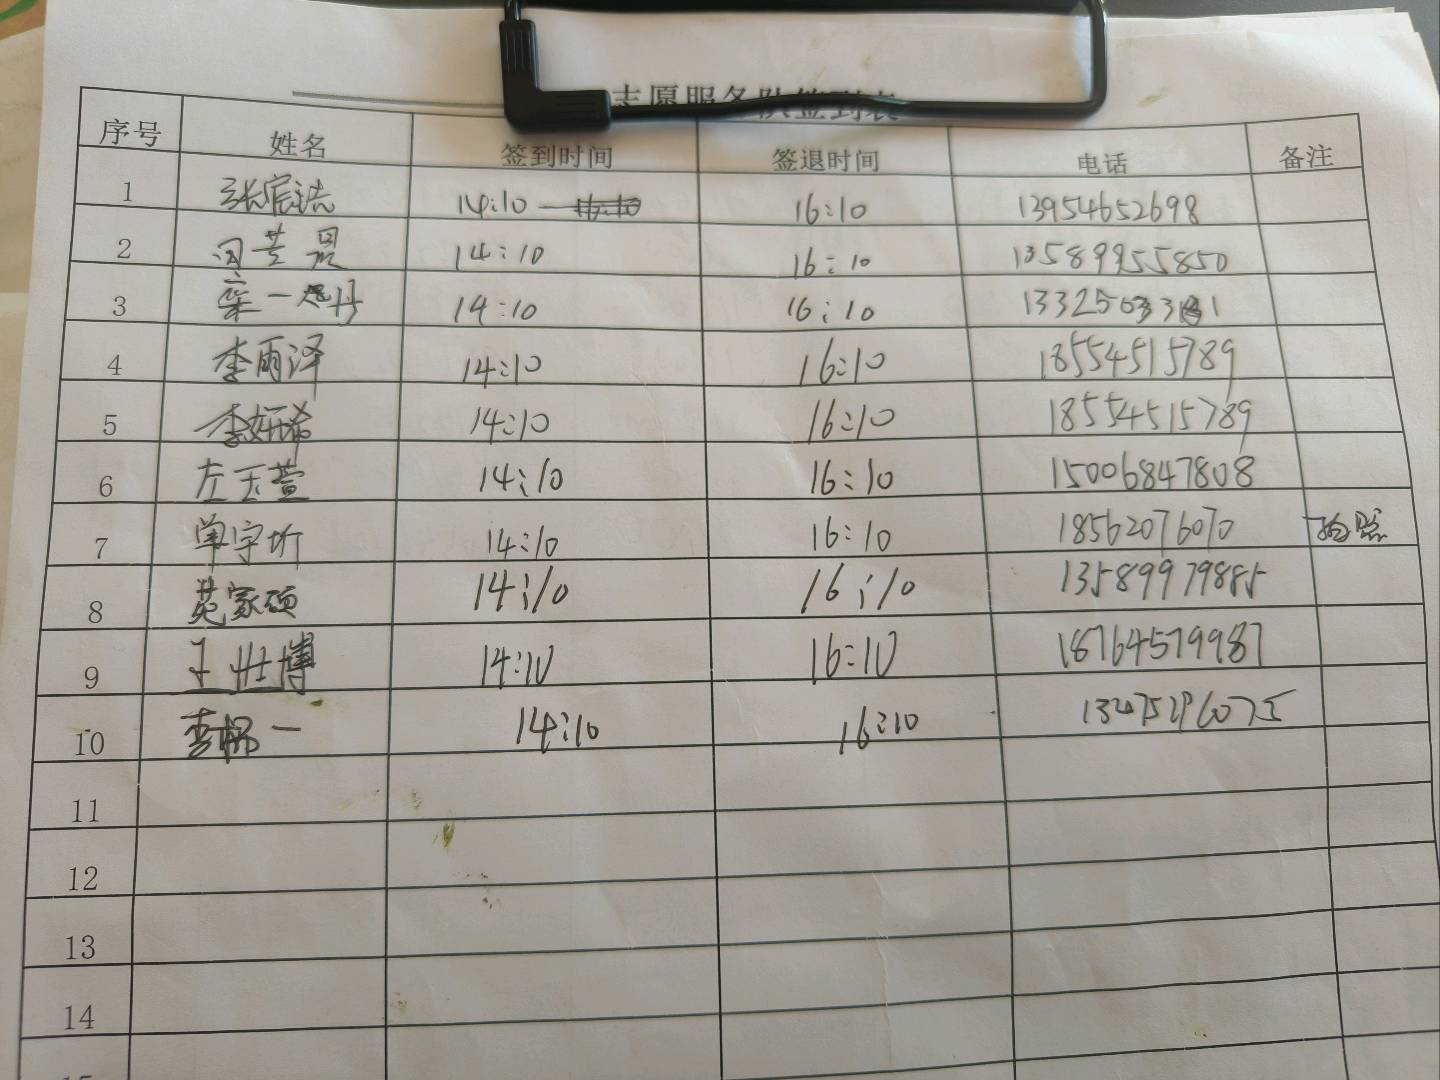 志愿服务队签到表
序号 姓名 签到时间 签退时间 电话 备注
1 张宸浩 14:10 16:10 13954652698
2 14:10 16:10 13589955850
3 栾一 14:10 16:10 133250331
4 李雨泽 14:10 16:10 18554515789
5 李妍希 14:10 16:10 18554515789
6 左玉萱 14:10 16:10 15006847808
7 单宇圻 14:10 16:10 18562076070 拍照
8 苑家硕 14:10 16:10 13589979885
9 王壮博 14:10 16:10 18764579987
10 李 一 14:10 16:10
11
12
13
14
15